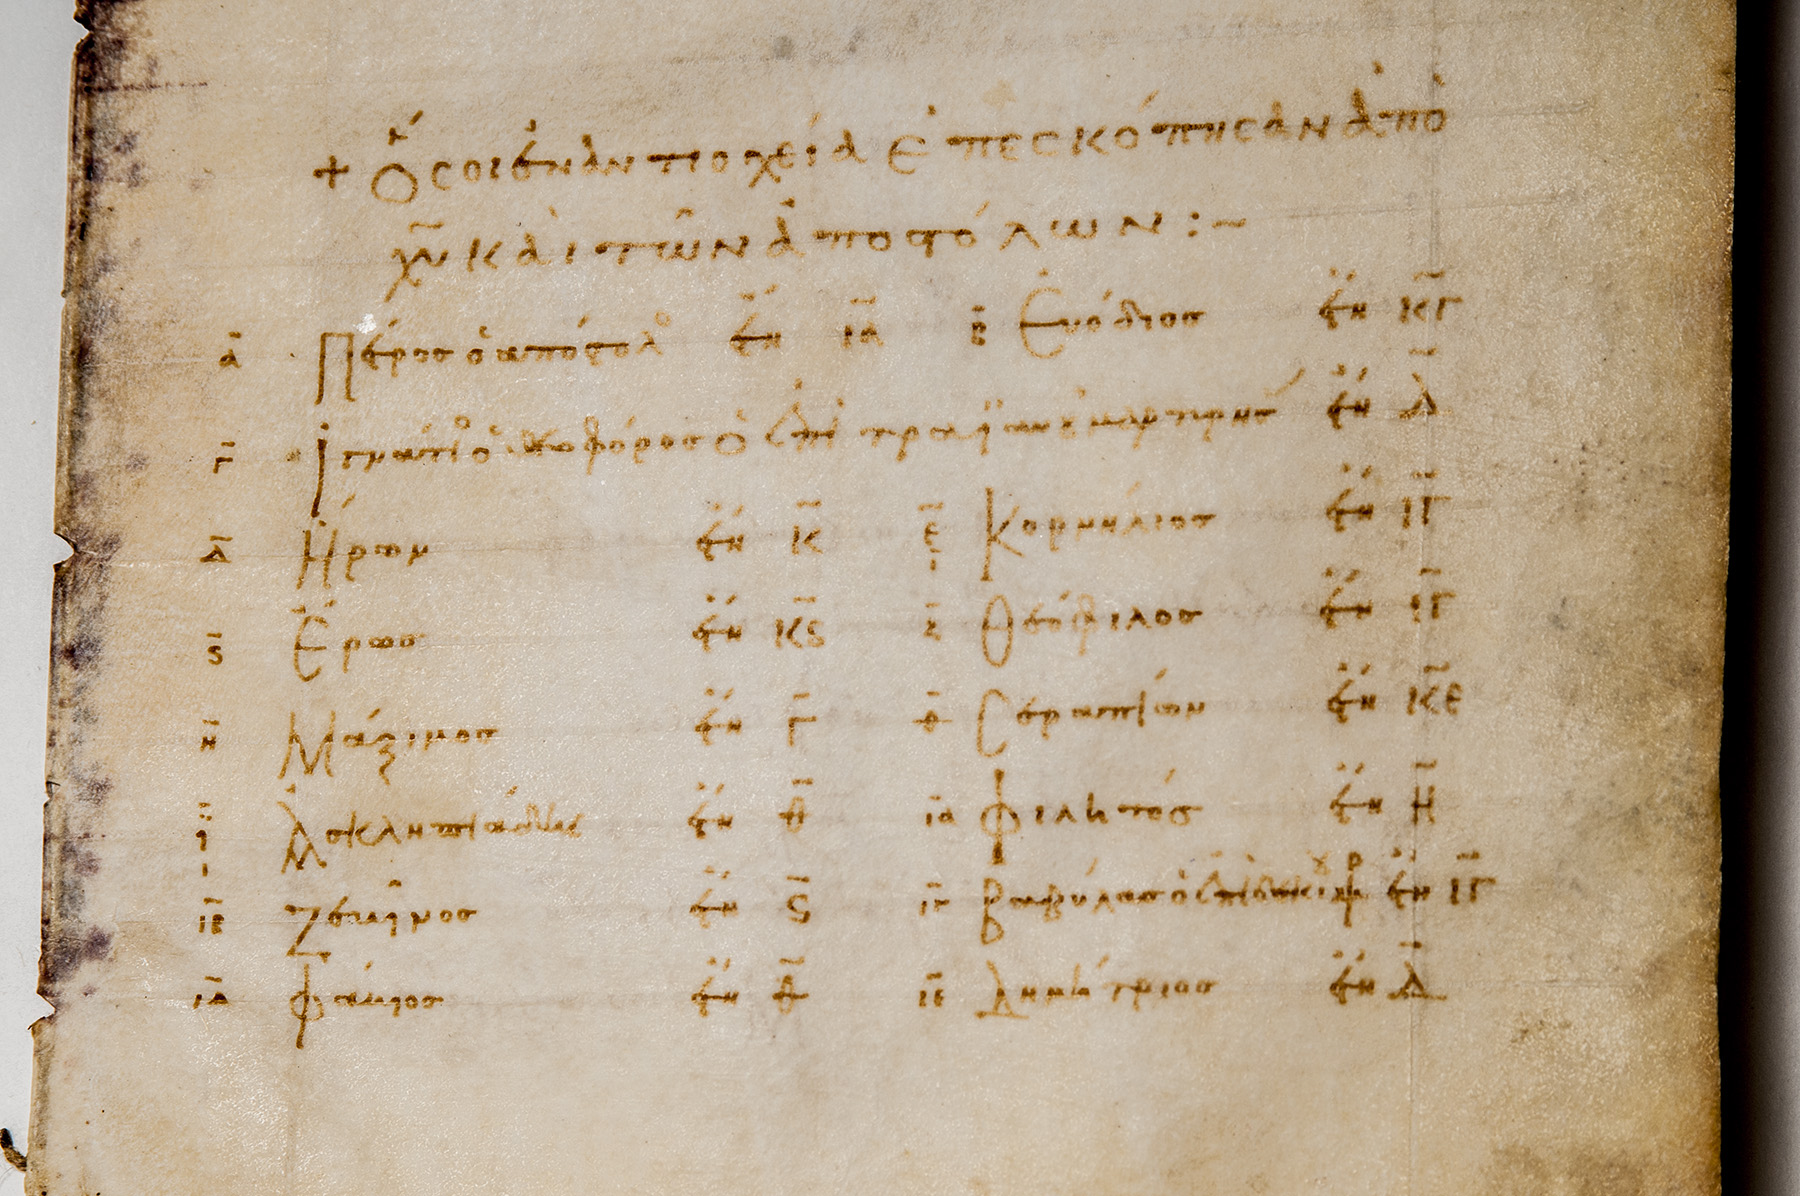 + Ὅσοι ἐν ἀντιοχεία ἐπεσκόπησαν ἀπὸ
χ̅υ̅ καὶ τῶν ἀποϛόλων :–
α̅ Πέτρος ὁ ἀπόϛολο ἔτη ι̅α̅ β̅ Εὐόδιος ἔτη κ̅γ̅
γ̅ Ἰγνάτιο ὁ θεοφόρος ὁ ἐπὶ τραϊανοῦ μαρτυρήσ ἔτη δ̅
δ̅ Ἥρων ἔτη κ̅ ε̅ Κορνήλιος ἔτη ι̅γ̅
ϛ̅ Ἔρωσ ἔτη κ̅ϛ̅ ζ̅ Θεόφιλος ἔτη ι̅γ̅
η̅ Μάξιμος ἔτη γ̅ θ̅ Σεραπίων ἔτη κ̅ε̅
ι̅ Ἀσκληπιάδης ἔτη θ̅ ι̅α̅ Φιλητός ἔτη η̅
ι̅β̅ Ζέβῖνος ἔτη ϛ̅ ι̅γ̅ Βαβύλας ὁ ἐπὶ ἔτη ι̅γ̅
ι̅δ̅ Φάβιος ἔτη θ̅ ι̅ε̅ Δημήτριος ἔτη δ̅